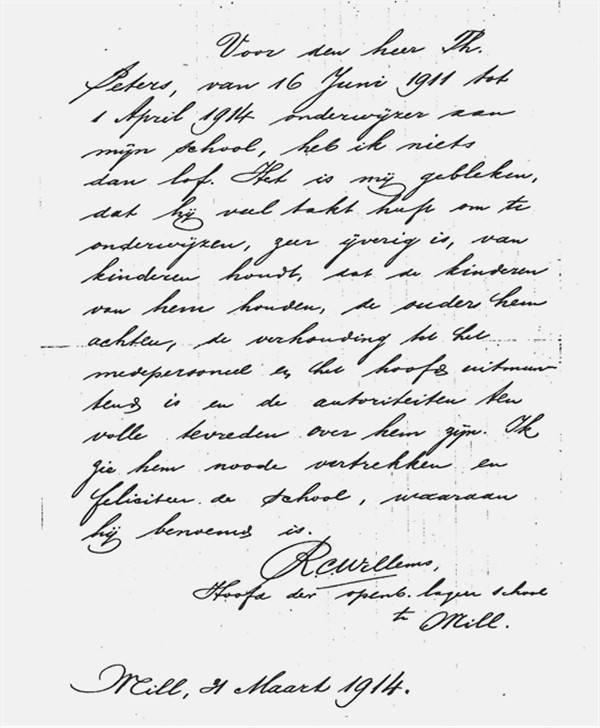 Voor den heer Th.
Peters, van 16 Juni 1911 tot
1 April 1914 onderwijzer aan
mijn school, heb ik niets
dan lof. Het is mij gebleken,
dat hij veel takt heeft om te
onderwijzen, zeer ijverig is, van
kinderen houdt, dat de kinderen
van hem houden, de ouders hem
achten, de verhouding tot het
medepersoneel en het hoofd uitmun
tend is en de autoriteiten ten
volle tevreden over hem zijn. Ik
zie hem noode vertrekken en
feliciteer de school, waaraan
hij benoemd is.
Willems,
Hoofd der openb. lagere school
te Mill.
Mill, 31 Maart 1914.